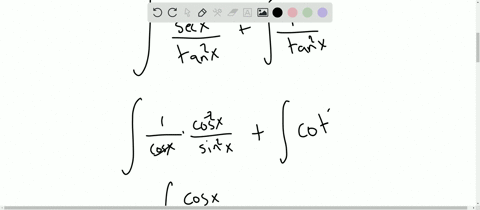 ∫ secx/tan²x + ∫ 1/tan²x
∫ 1/cosx · cos²x/sin²x + ∫ cot
∫ cosx